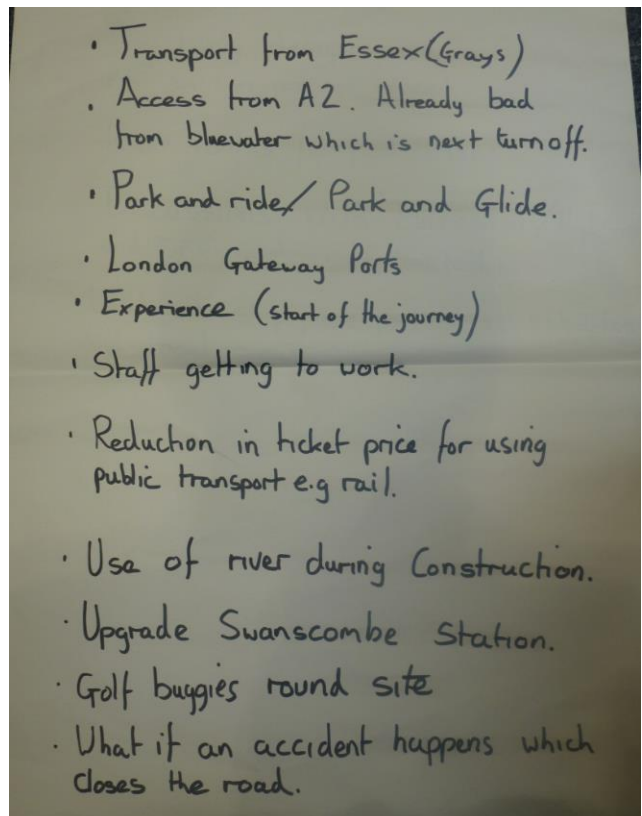 · Transport from Essex (Grays)
· Access from A2. Already bad
from bluewater which is next turn off.
· Park and ride/ Park and Glide.
· London Gateway Ports
· Experience (start of the journey)
· Staff getting to work.
· Reduction in ticket price for using
public transport e.g rail.
· Use of river during Construction.
· Upgrade Swanscombe Station.
· Golf buggies round site
· What if an accident happens which
closes the road.